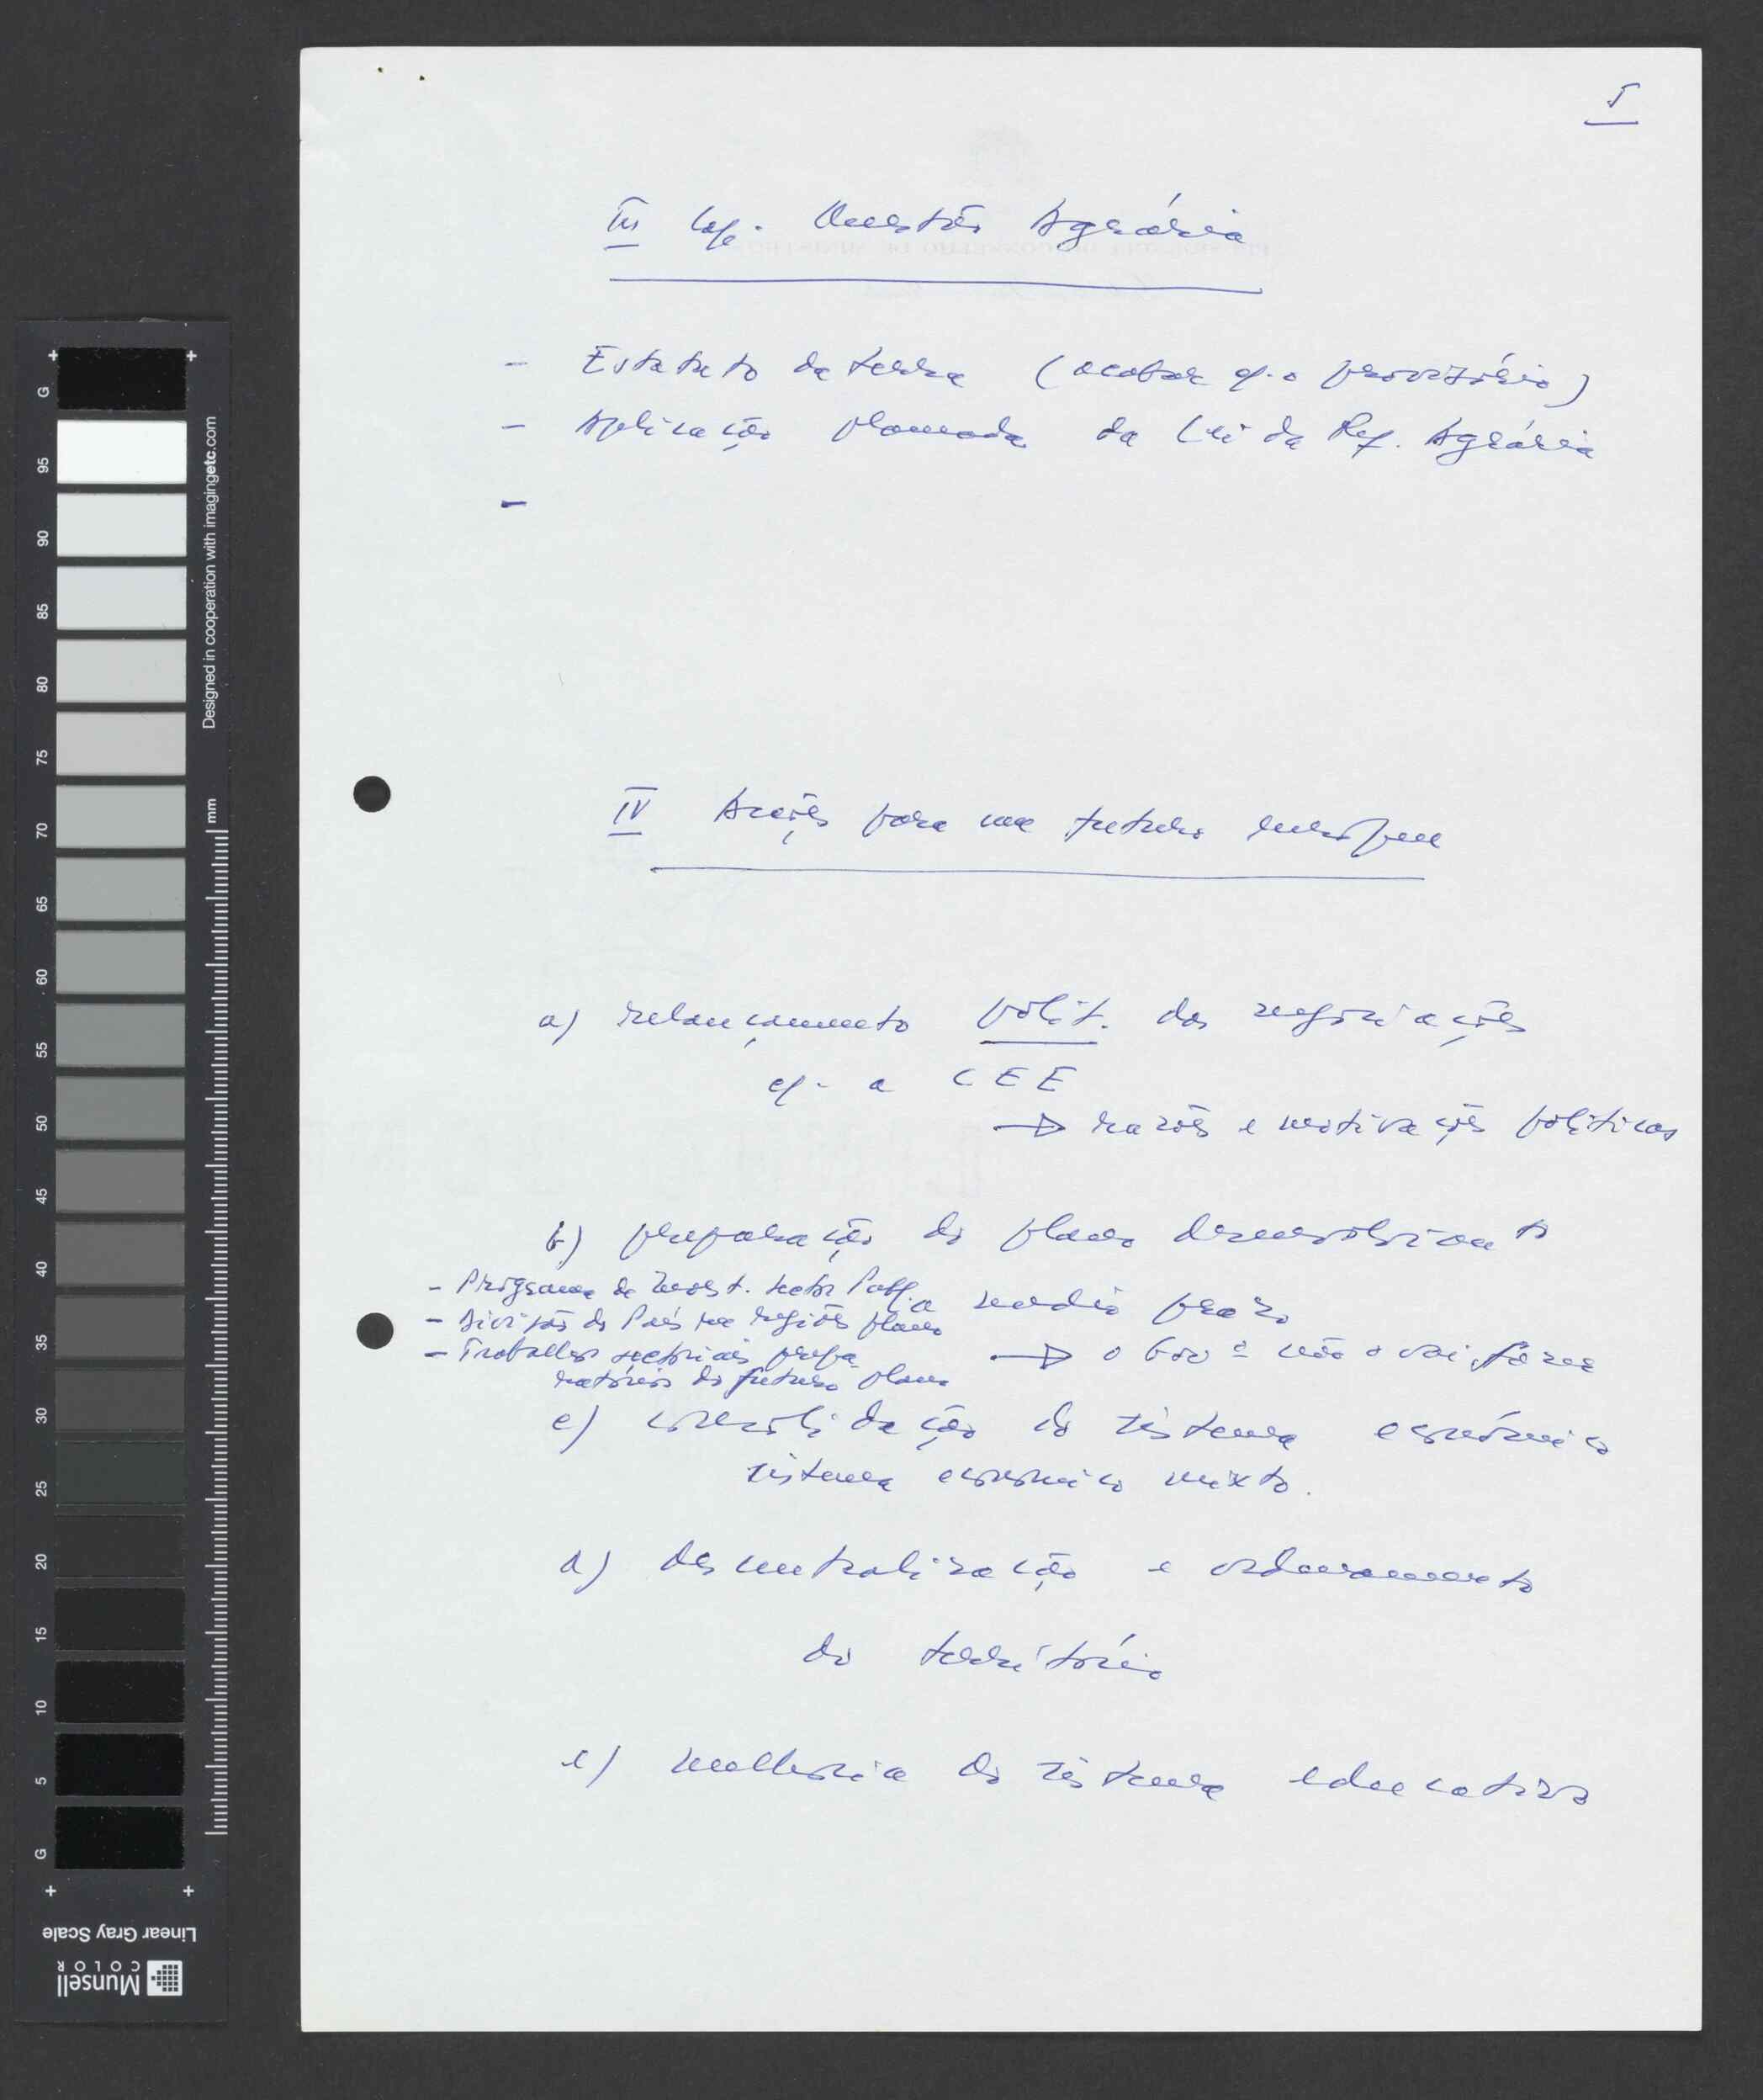 5
III Cap. Questão Agrária
- Estatuto da terra (acabar c/. o provisório)
- Aplicação planeada da Lei da Ref. Agrária
-
IV Acções para um futuro europeu
a) relançamento polít. das negociações
c/. a CEE
→ razões e motivações políticas
b) preparação do plano desenvolvimento
a médio prazo
- Programa de Invest. sector Púb.
- Divisão do País em regiões plano
- Trabalhos sectoriais prepa
ratórios do futuro plano
→ o Govº não o vai fazer
c) consolidação do sistema económico
sistema económico mixto.
d) descentralização e ordenamento
do território
e) melhoria do sistema educativo
Designed in cooperation with imagingetc.com
mm
G 95 90 85 80 75 70 65 60 55 50 45 40 35 30 25 20 15 10 5 G
Linear Gray Scale
Munsell
COLOR